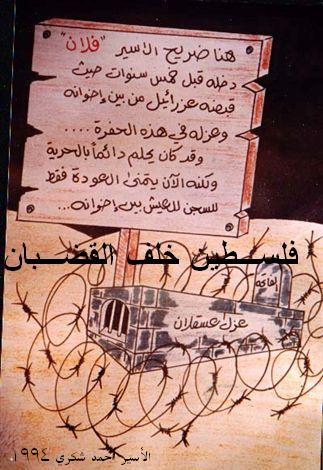 هنا ضريح الأسير "فلان"
دخله قبل خمس سنوات حيث
قبضه عزرائيل من بين إخوانه
وعزله في هذه الحفرة ....
وقد كان يحلم دائماً بالحرية
ولكنه الآن يتمنى العودة فقط
للسجن للعيش بين إخوانه...
فلسطين خلف القضبان
عزل عسقلان
الأسير أحمد شكري ١٩٩٤